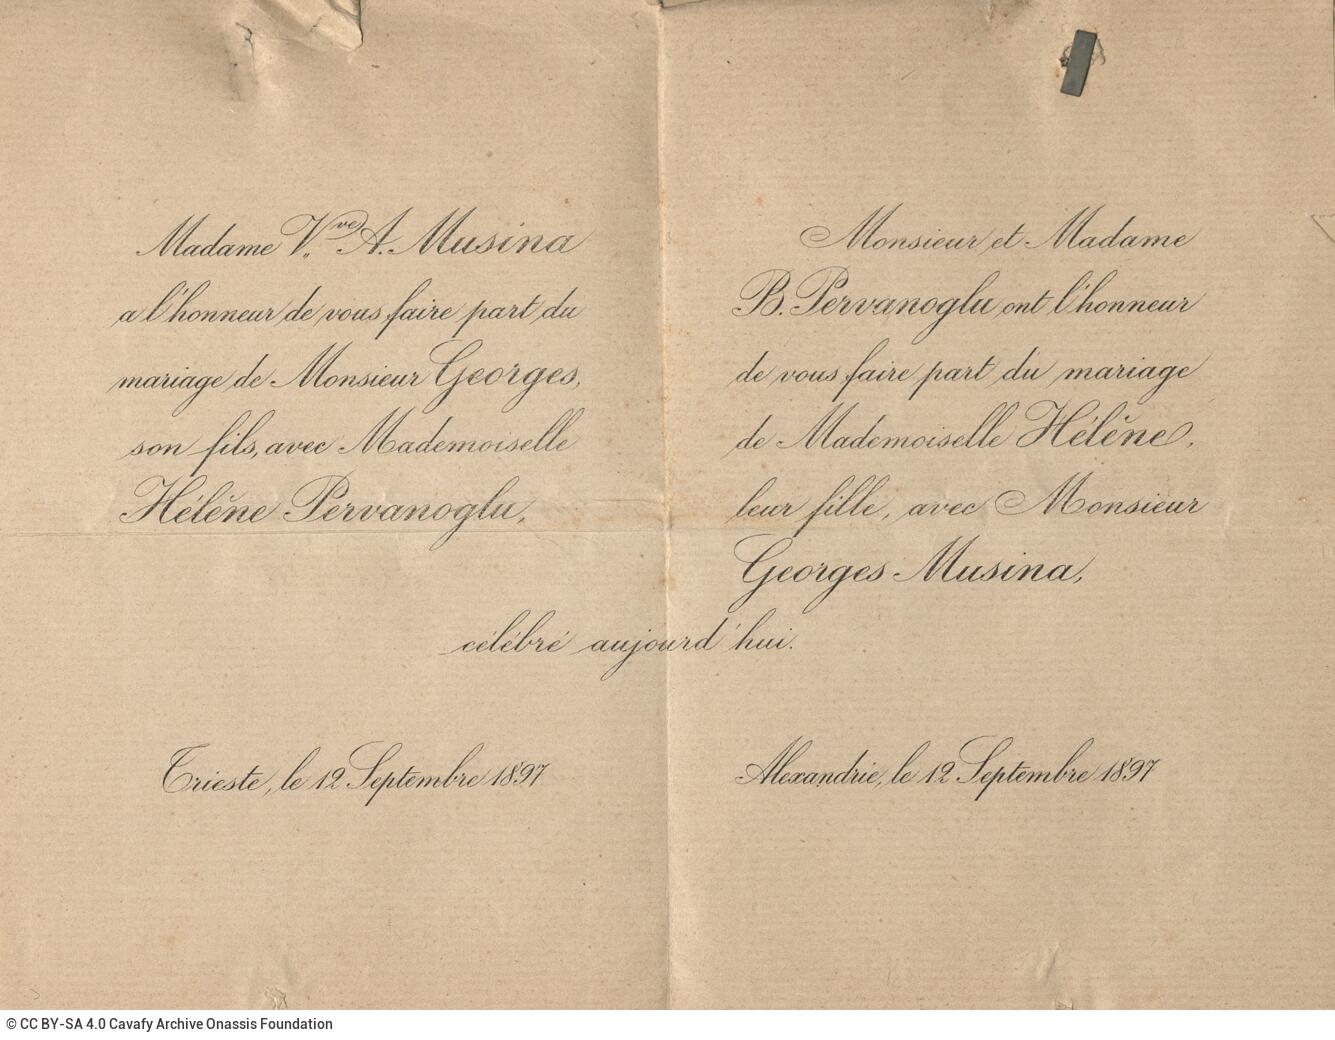 Madame V.ve A. Musina
a l'honneur de vous faire part du
mariage de Monsieur Georges,
son fils, avec Mademoiselle
Hélène Pervanoglu,
Monsieur et Madame
B. Pervanoglu ont l'honneur
de vous faire part du mariage
de Mademoiselle Hélène,
leur fille, avec Monsieur
Georges Musina,
célébré aujourd'hui.
Trieste, le 12 Septembre 1897
Alexandrie, le 12 Septembre 1897
© CC BY-SA 4.0 Cavafy Archive Onassis Foundation